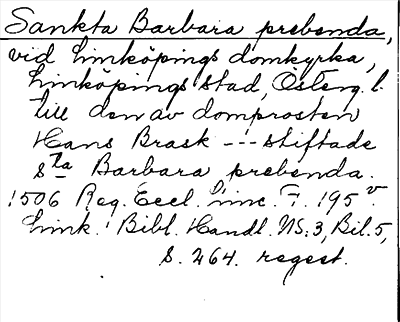 Sankta Barbara prebenda,
vid Linköpings domkyrka,
Linköpings stad, Österg. l.
till den av domprosten
Hans Brask --- stiftade
S:ta Barbara prebenda.
1506 Reg. Eccl. Linc. F. 195 v.
Link. Bibl. Handl. NS:3, Bil. 5,
s. 264. regest.